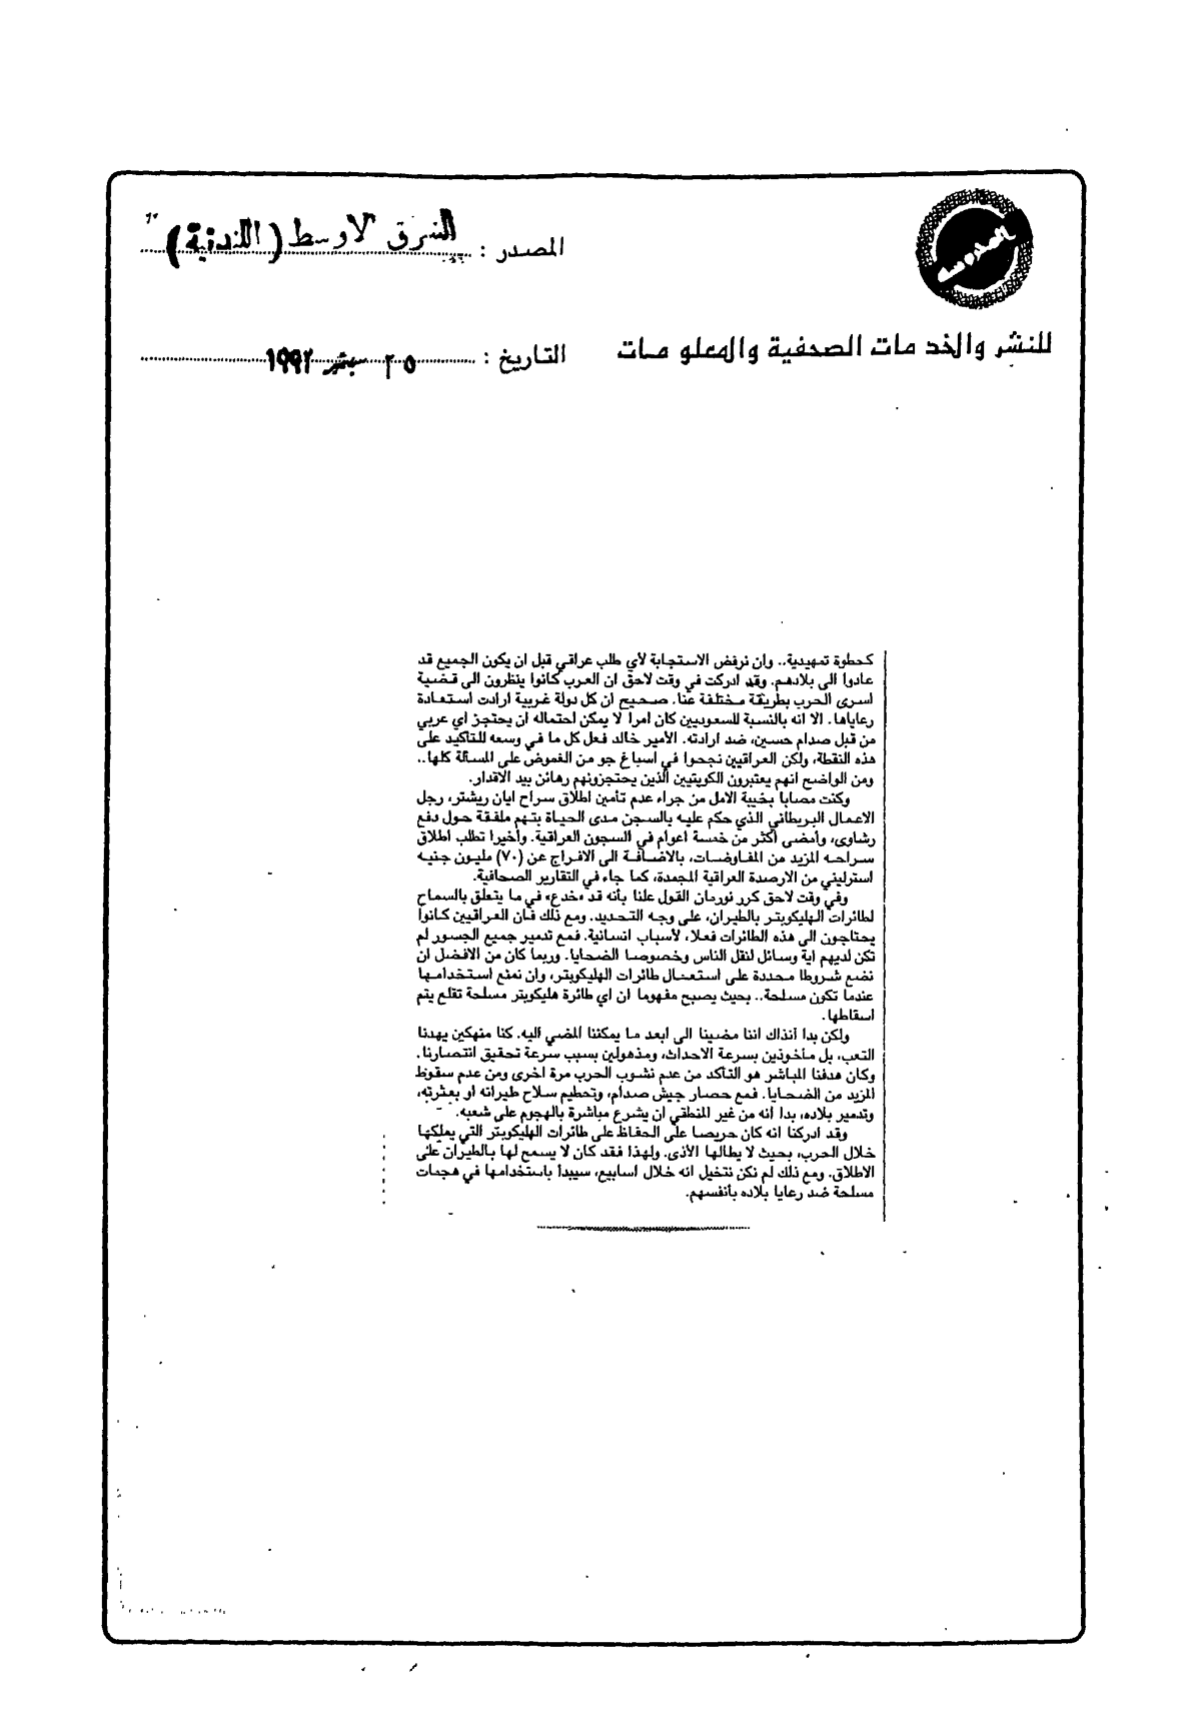 المصدر : الشرق الاوسط (اللندنية)
للنشر والخدمات الصحفية والمعلومات
التاريخ : ٢٥ سبتمبر ١٩٩٢
كخطوة تمهيدية.. وان نرفض الاستجابة لأي طلب عراقي قبل ان يكون الجميع قد
عادوا الى بلادهم. وقد ادركت في وقت لاحق ان العرب كانوا ينظرون الى قضية
اسرى الحرب بطريقة مختلفة عنا. صحيح ان كل دولة غربية ارادت استعادة
رعاياها. الا انه بالنسبة للسعوديين كان امرا لا يمكن احتماله ان يحتجز اي عربي
من قبل صدام حسين، ضد ارادته. الأمير خالد فعل كل ما في وسعه للتاكيد على
هذه النقطة، ولكن العراقيين نجحوا في اسباغ جو من الغموض على المسألة كلها..
ومن الواضح انهم يعتبرون الكويتيين الذين يحتجزونهم رهائن بيد الاقدار.
وكنت مصابا بخيبة الامل من جراء عدم تأمين اطلاق سراح ايان ريشتر، رجل
الاعمال البريطاني الذي حكم عليه بالسجن مدى الحياة بتهم ملفقة حول دفع
رشاوى، وأمضى أكثر من خمسة اعوام في السجون العراقية. وأخيرا تطلب اطلاق
سراحه المزيد من المفاوضات، بالاضافة الى الافراج عن (٧٠) مليون جنيه
استرليني من الارصدة العراقية المجمدة، كما جاء في التقارير الصحافية.
وفي وقت لاحق كرر نورمان القول علنا بأنه قد «خدع» في ما يتعلق بالسماح
لطائرات الهليكوبتر بالطيران، على وجه التحديد. ومع ذلك فان العراقيين كانوا
يحتاجون الى هذه الطائرات فعلا، لأسباب انسانية. فمع تدمير جميع الجسور لم
تكن لديهم اية وسائل لنقل الناس وخصوصا الضحايا. وربما كان من الافضل ان
نضع شروطا محددة على استعمال طائرات الهليكوبتر، وان نمنع استخدامها
عندما تكون مسلحة.. بحيث يصبح مفهوما ان اي طائرة هليكوبتر مسلحة تقلع يتم
اسقاطها.
ولكن بدا آنذاك اننا مضينا الى ابعد ما يمكننا المضي اليه. كنا منهكين يهدنا
التعب، بل مأخوذين بسرعة الاحداث، ومذهولين بسبب سرعة تحقيق انتصارنا.
وكان هدفنا المباشر هو التأكد من عدم نشوب الحرب مرة اخرى ومن عدم سقوط
المزيد من الضحايا. فمع حصار جيش صدام، وتحطيم سلاح طيرانه او بعثرته،
وتدمير بلاده، بدا انه من غير المنطقي ان يشرع مباشرة بالهجوم على شعبه.
وقد ادركنا انه كان حريصا على الحفاظ على طائرات الهليكوبتر التي يملكها
خلال الحرب، بحيث لا يطالها الأذى. ولهذا فقد كان لا يسمح لها بالطيران على
الاطلاق. ومع ذلك لم نكن نتخيل انه خلال اسابيع، سيبدأ باستخدامها في هجمات
مسلحة ضد رعايا بلاده بأنفسهم.